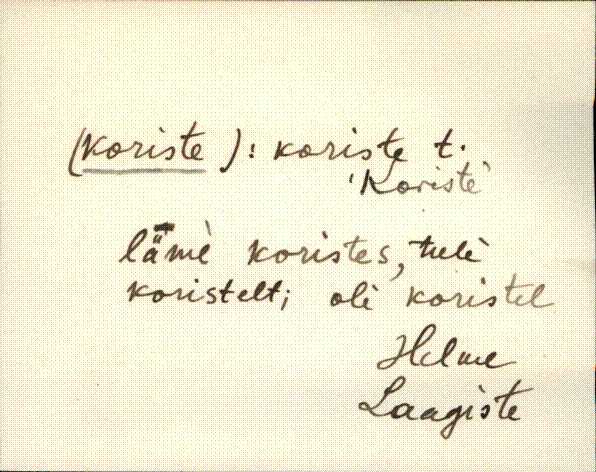 (koriste): koriste t.
'Koriste'
läme̬ koristes, tulì
koristelt; olì koristel
Helme
Laagiste